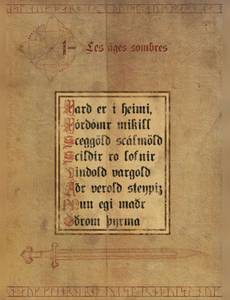 1– Les âges sombres
Hard er i heimi,
Hórdómr mikill
Sceggöld scálmöld
Scildir ro lofnir
Vindold vargold
Adr verold steypiz
Mun egi madr
Odrom þyrma